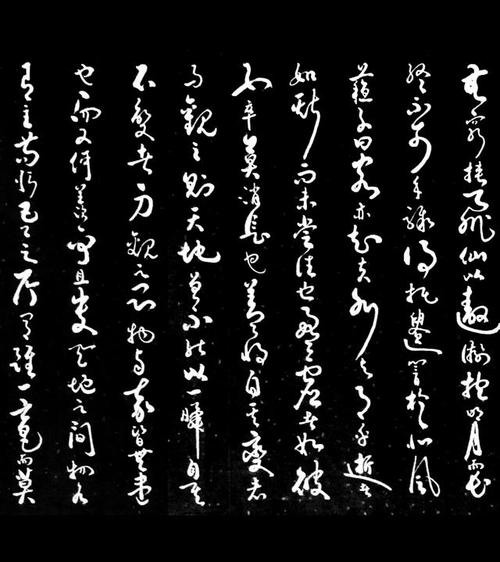 無窮挟飛仙以遨游抱明月而長
終知不可乎驟得托遺響於悲風
蘇子曰客亦知夫水与月乎逝者
如斯而未嘗往也盈虚者如彼
而卒莫消長也盖將自其變者
而觀之則天地曾不能以一瞬自其
不變者而觀之則物与我皆無盡
也而又何羨乎且夫天地之間物各
有主苟非吾之所有雖一毫而莫